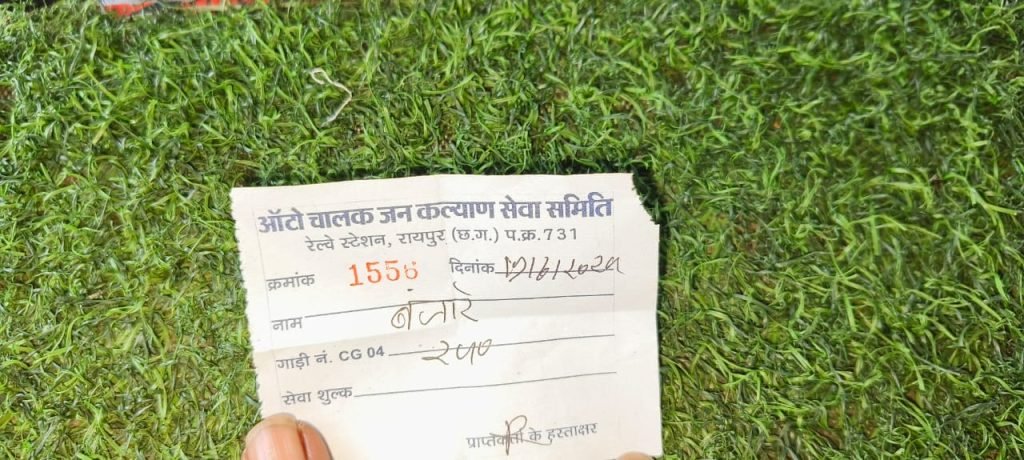 ऑटो चालक जन कल्याण सेवा समिति
रेल्वे स्टेशन, रायपुर (छ.ग.) प.क्र.731
क्रमांक 1556 दिनांक
नाम बंजारे
गाड़ी नं. CG 04
सेवा शुल्क
प्राप्तकर्ता के हस्ताक्षर